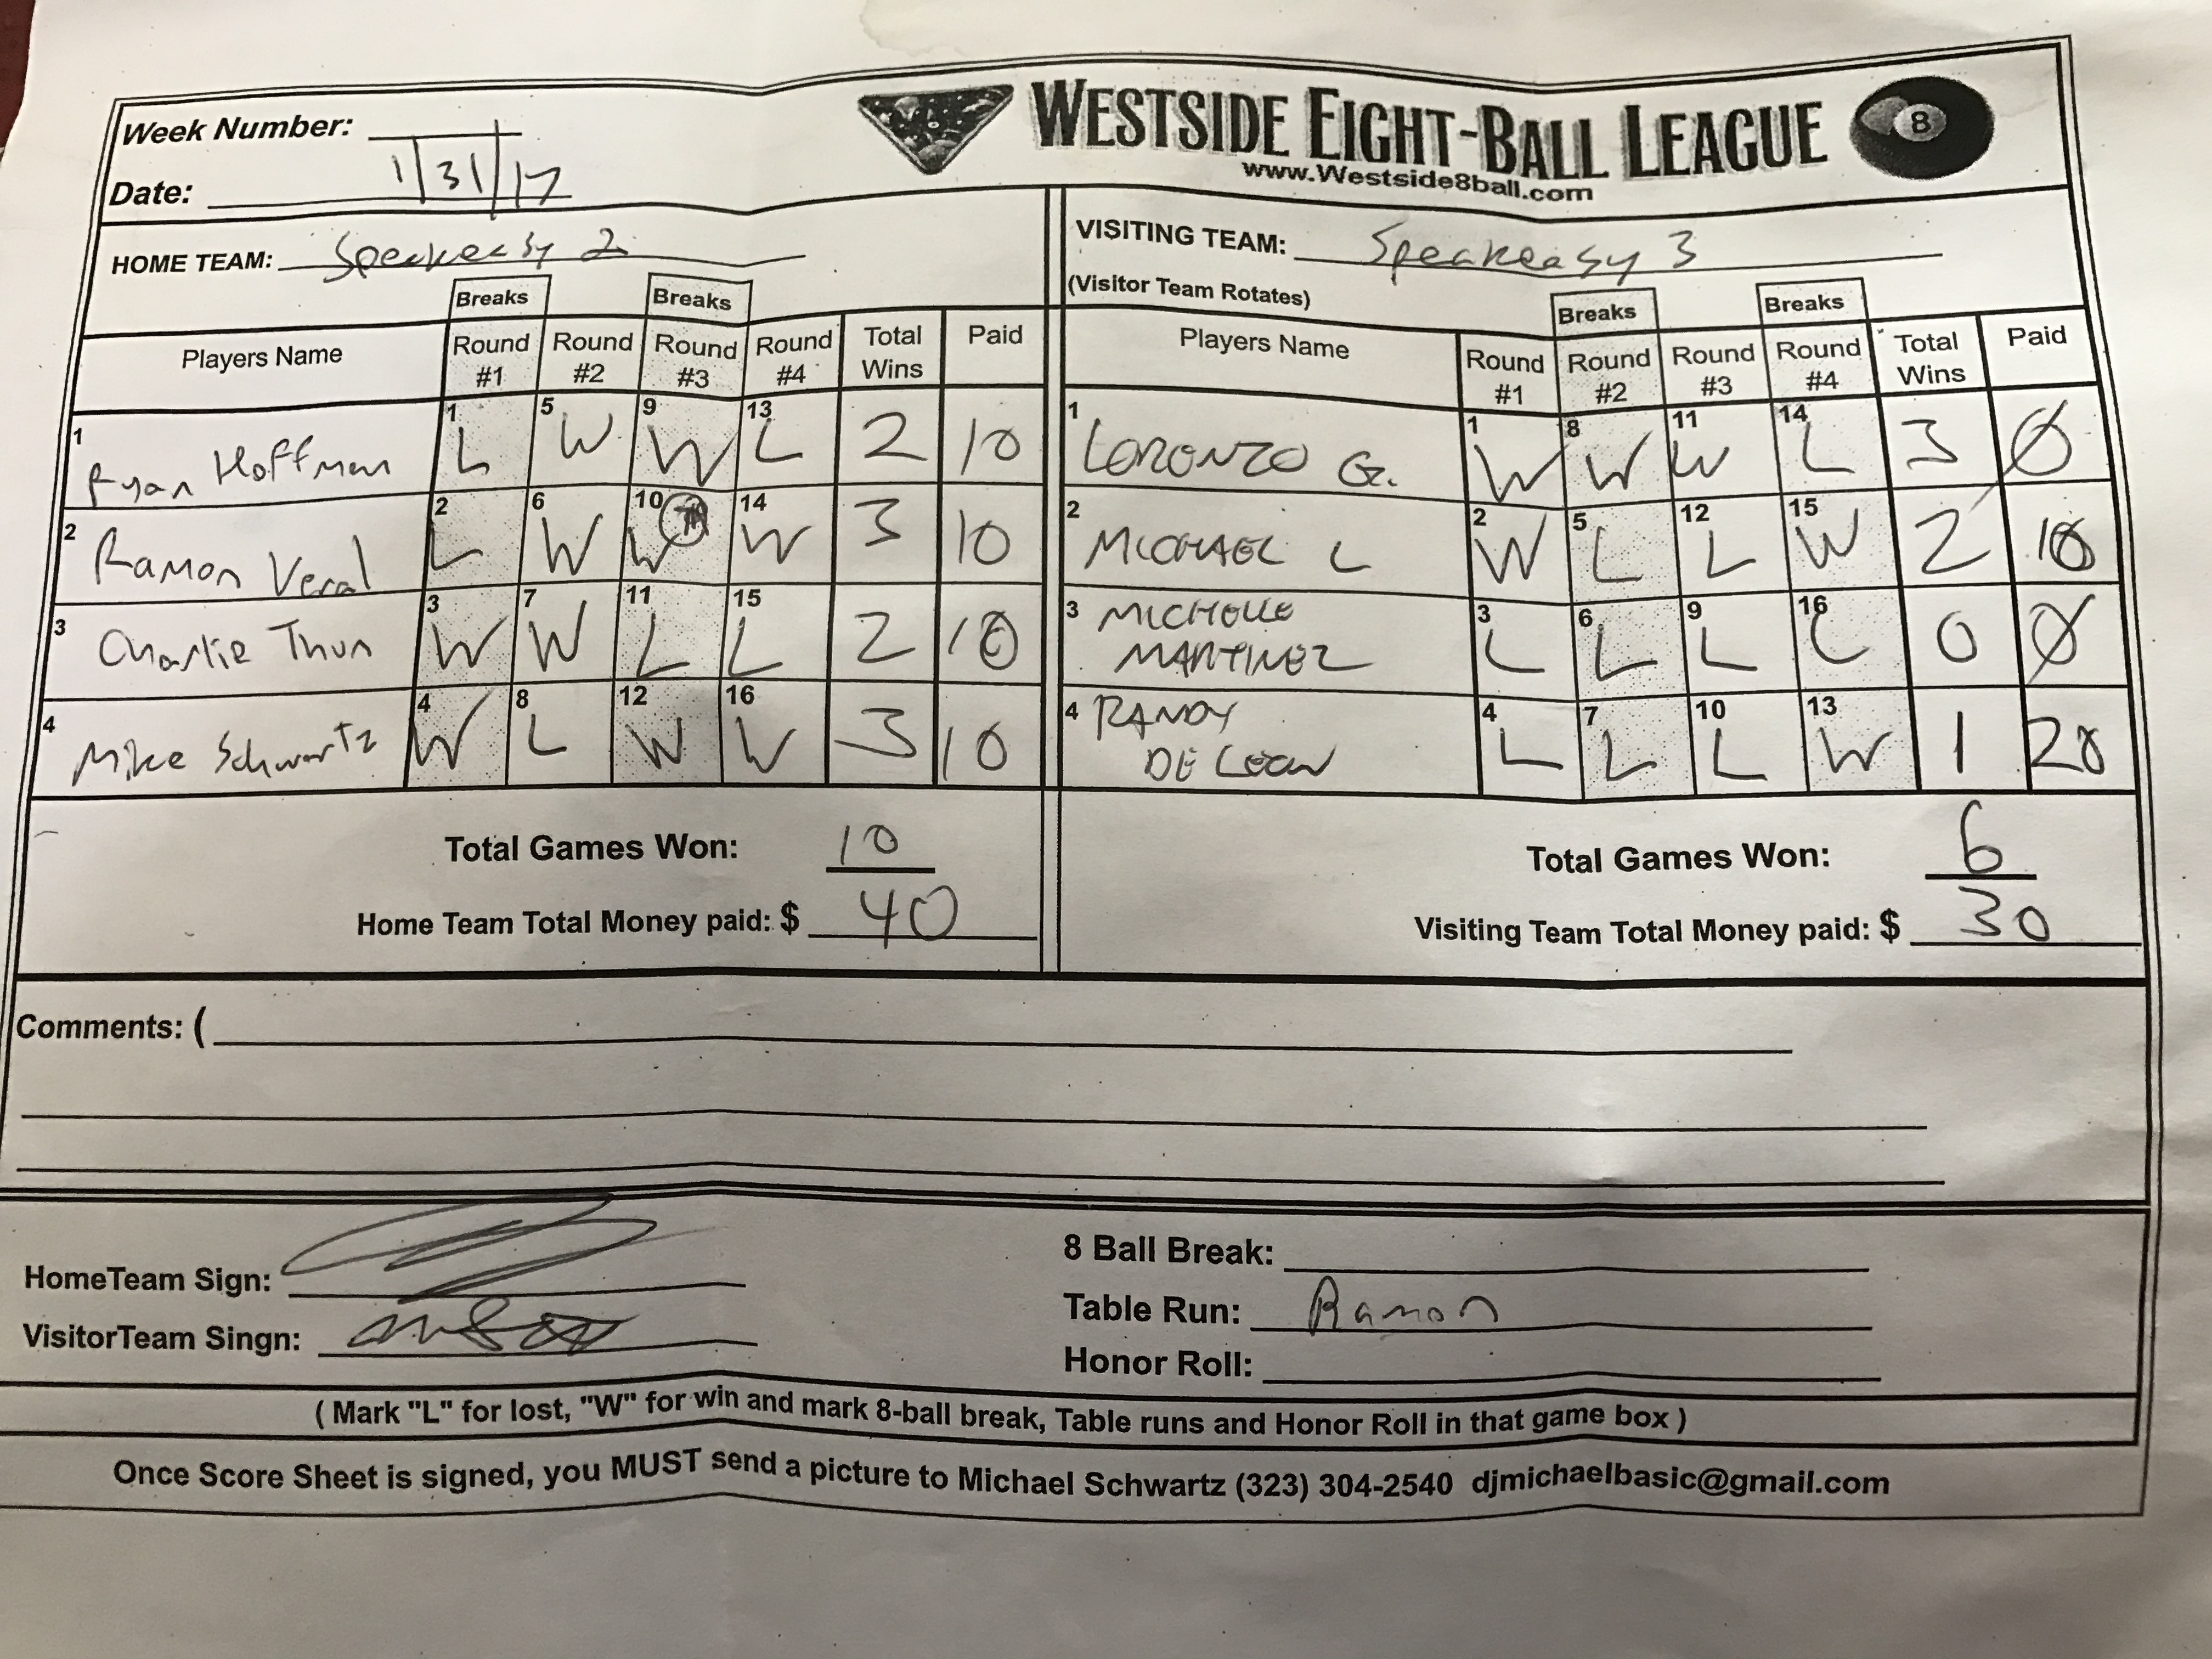 Week Number:
WESTSIDE EIGHT-BALL LEAGUE 8
www.Westside8ball.com
Date: 1/31/17
HOME TEAM: Speakeasy 2
VISITING TEAM: Speakeasy 3
(Visitor Team Rotates)
Breaks Breaks Breaks Breaks
Players Name Round #1 Round #2 Round #3 Round #4 Total Wins Paid Players Name Round #1 Round #2 Round #3 Round #4 Total Wins Paid
1 Ryan Hoffman 1 L 5 W 9 W 13 L 2 10 1 LORONZO G. 1 W 8 W 11 W 14 L 3 Ø
2 Ramon Veral 2 L 6 W 10 W 14 W 3 10 2 MICHAEL L 2 W 5 L 12 L 15 W 2 10
3 Charlie Thun 3 W 7 W 11 L 15 L 2 10 3 MICHELLE MARTINEZ 3 L 6 L 9 L 16 L 0 Ø
4 Mike Schwartz 4 W 8 L 12 W 16 W 3 10 4 RANDY DE LEON 4 L 7 L 10 L 13 W 1 20
Total Games Won: 10 Total Games Won: 6
Home Team Total Money paid: $ 40 Visiting Team Total Money paid: $ 30
Comments: (
HomeTeam Sign:
VisitorTeam Singn:
8 Ball Break:
Table Run: Ramon
Honor Roll:
( Mark "L" for lost, "W" for win and mark 8-ball break, Table runs and Honor Roll in that game box )
Once Score Sheet is signed, you MUST send a picture to Michael Schwartz (323) 304-2540 djmichaelbasic@gmail.com